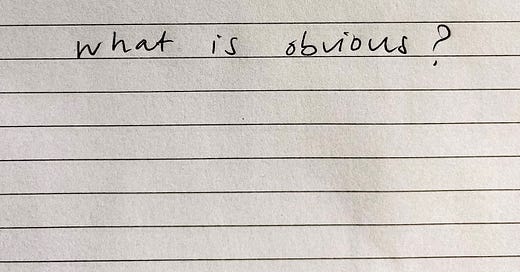 what is obvious?